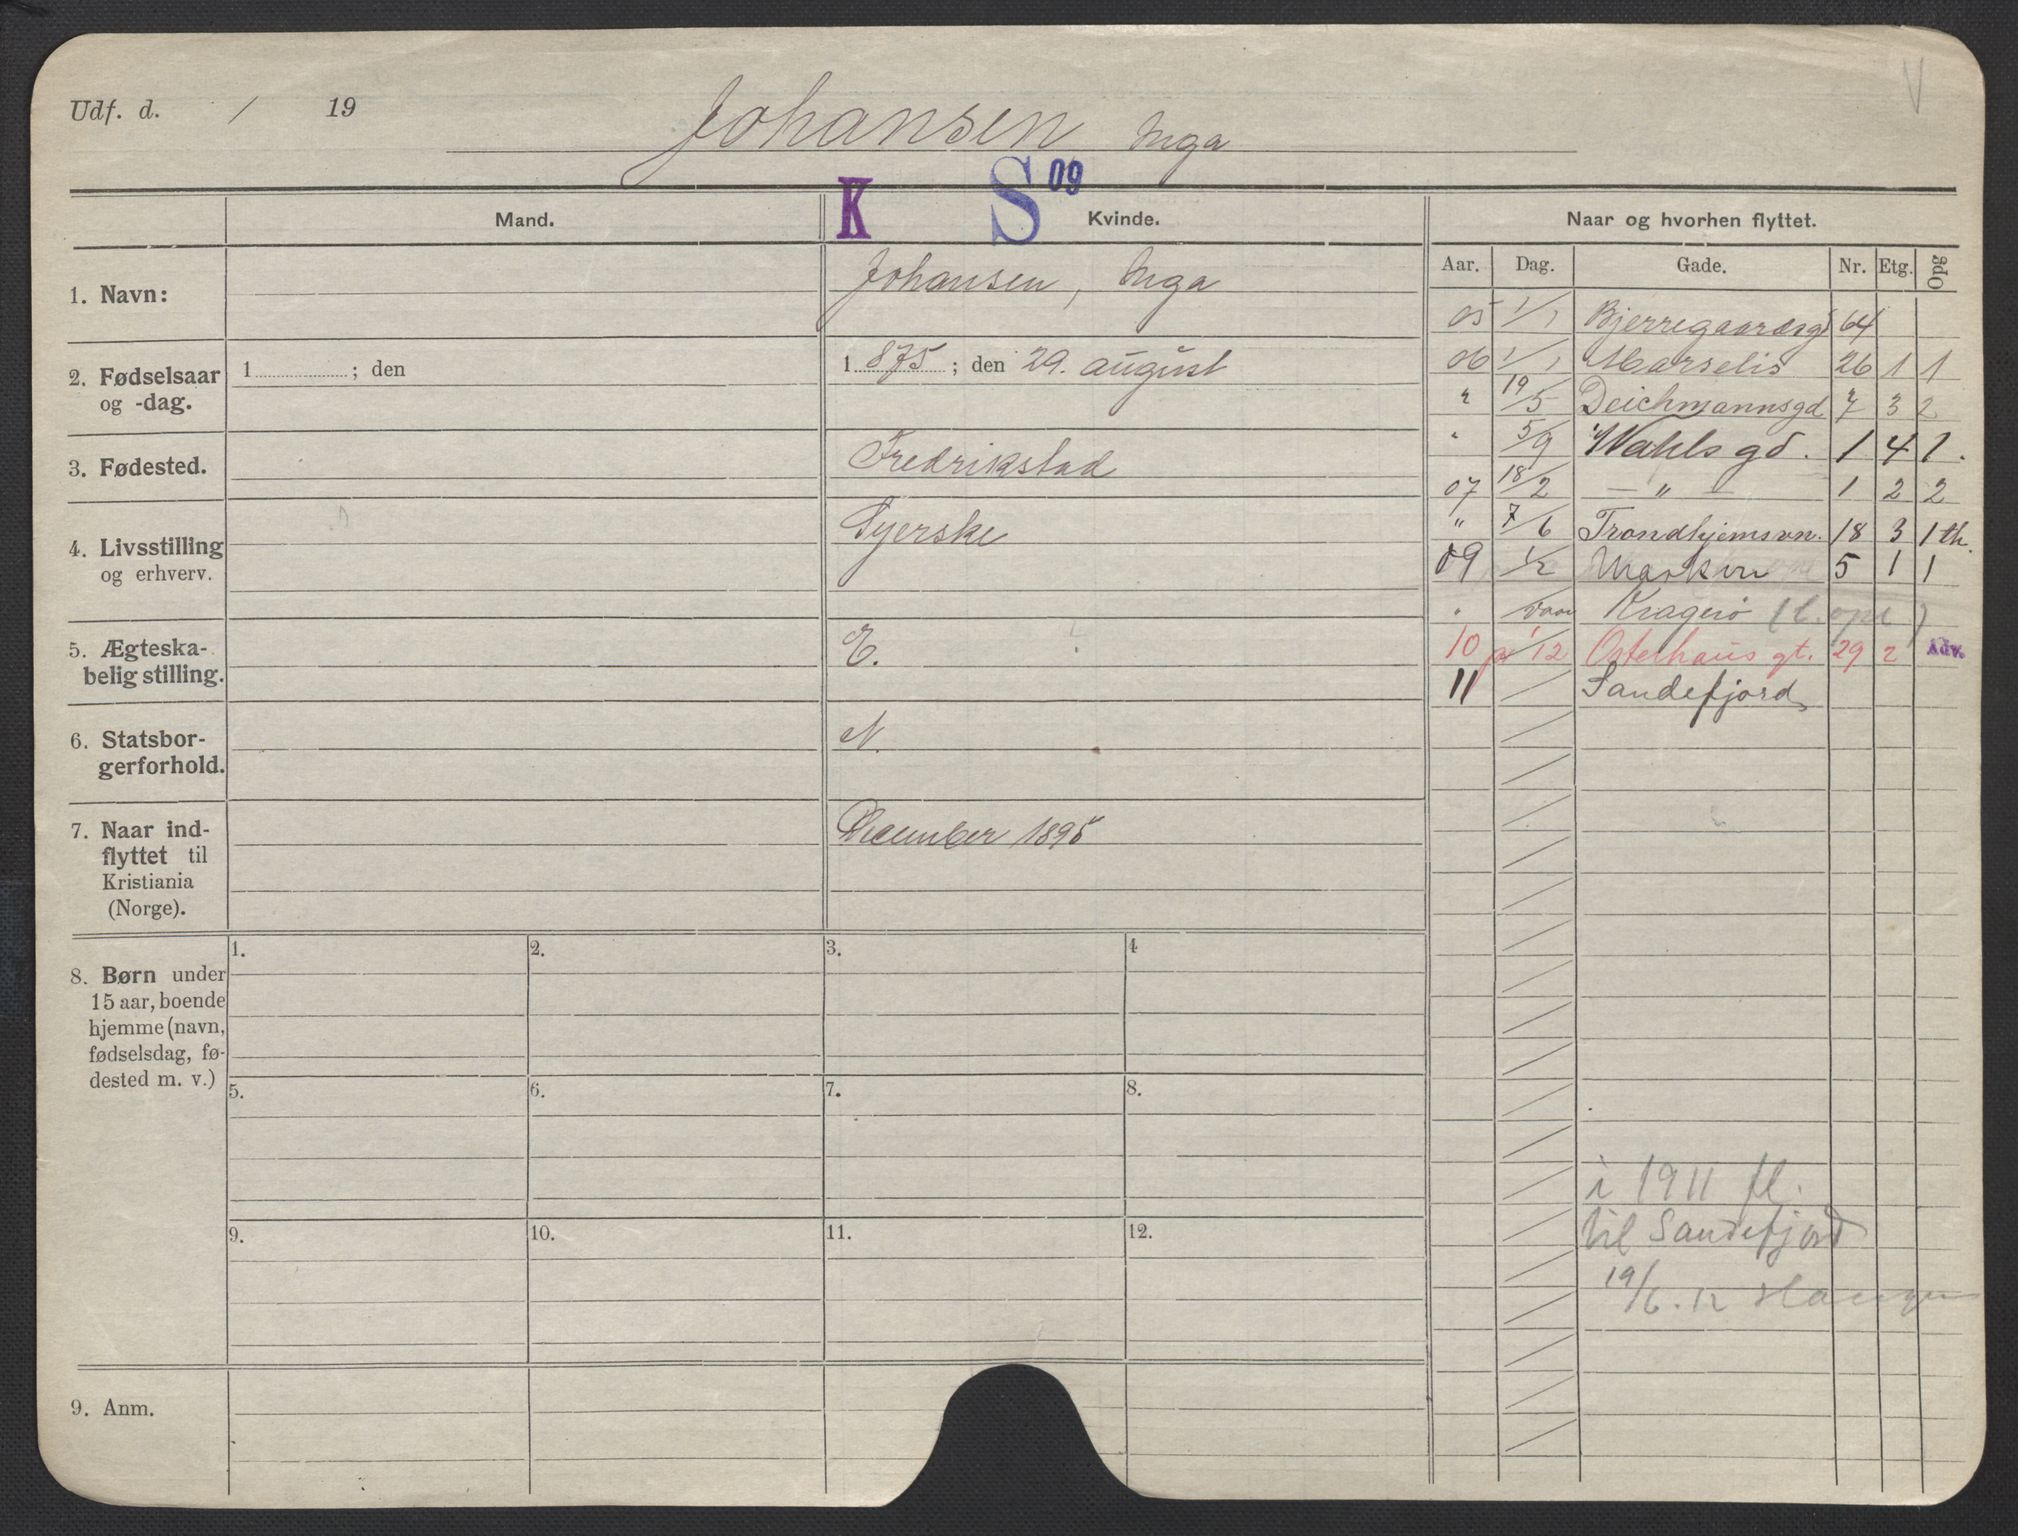 Udf. d. / 19
Johansen Inga
K S 09
Mand. Kvinde. Naar og hvorhen flyttet.
Aar. Dag. Gade. Nr. Etg. Opg
1. Navn: Johansen, Inga
2. Fødselsaar og -dag. 1 ; den 1 875 ; den 29. august
3. Fødested. Fredrikstad
4. Livsstilling og erhverv. Syerske
5. Ægteskabelig stilling. E.
6. Statsborgerforhold. N.
7. Naar indflyttet til Kristiania (Norge). December 1895
05 1/1 Bjerregaardsgd 64
06 1/1 Marselis 26 1 1
" 19/5 Deichmannsgd 7 3 2
" 5/9 Wahls gd. 1 4 1.
07 18/2 — " — 1 2 2
" 7/6 Trondhjemsvn. 18 3 1 th.
09 1/2 Markvn 5 1 1
" vaar Kragerø (l. opl )
10 pr 1/12 Osterhaus gt. 29 2 Adv.
11 / Sandefjord
i 1911 fl.
til Sandefjord
19/6. 12
8. Børn under
15 aar, boende
hjemme (navn,
fødselsdag, fø-
dested m. v.)
1. 2. 3. 4
5. 6. 7. 8.
9. 10. 11. 12.
9. Anm.